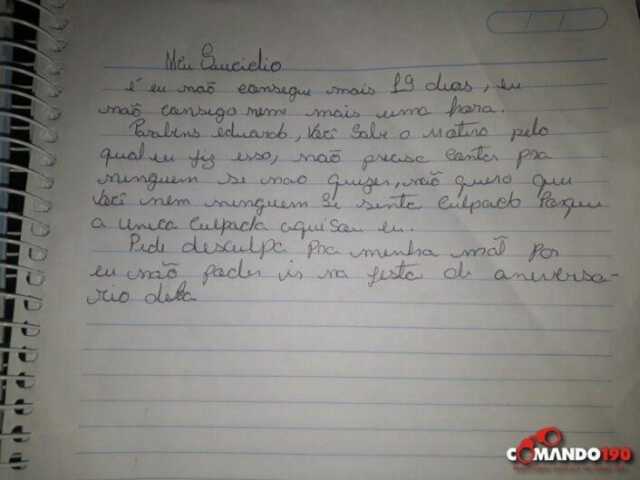 Meu Suucidio
é eu não consegue mais 19 dias, eu
não consigo nem mais uma hora.
Parabens eduardo, Você sabe o motivo pelo
qual eu fiz isso, não precisa contar pra
ninguem se não quizer, não quero que
Você nem ninguem se sinta culpado Porque
a unica culpada aqui sou eu.
Pede desculpa pra minha mãe por
eu não poder ir na festa de aniversa-
rio dela
COMANDO190